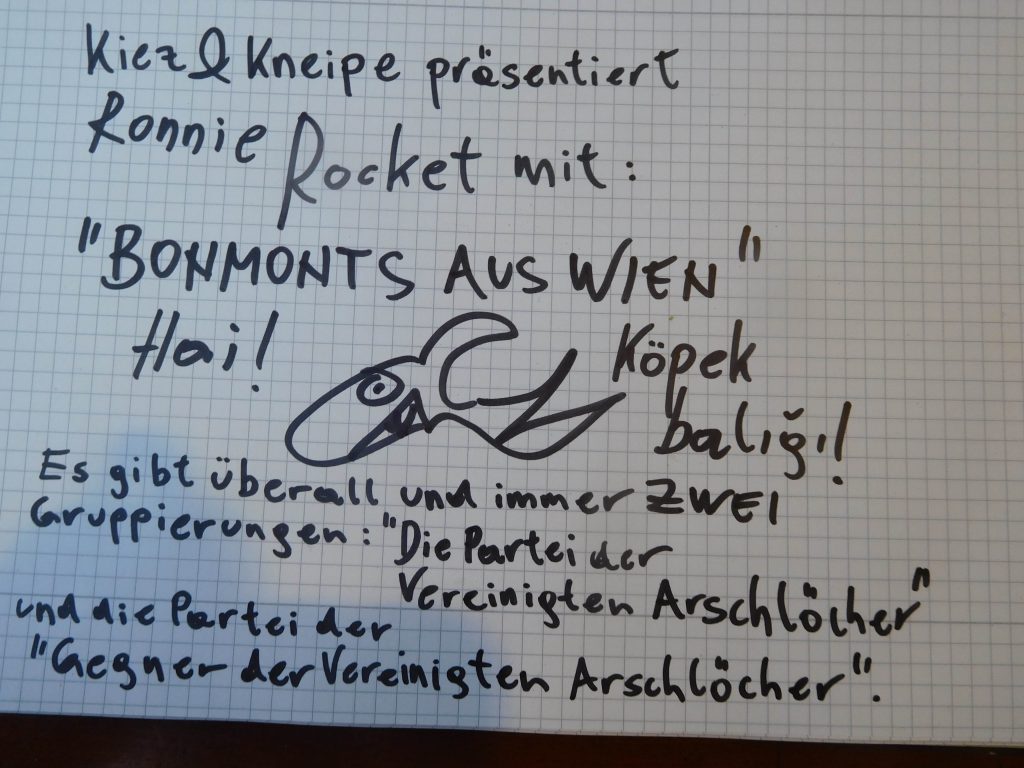 Kiez & Kneipe präsentiert
Ronnie Rocket mit:
"BONMONTS AUS WIEN"
Hai!
Köpek
balığı!
Es gibt überall und immer ZWEI
Gruppierungen: "Die Partei der
Vereinigten Arschlöcher"
und die Partei der
"Gegner der Vereinigten Arschlöcher".